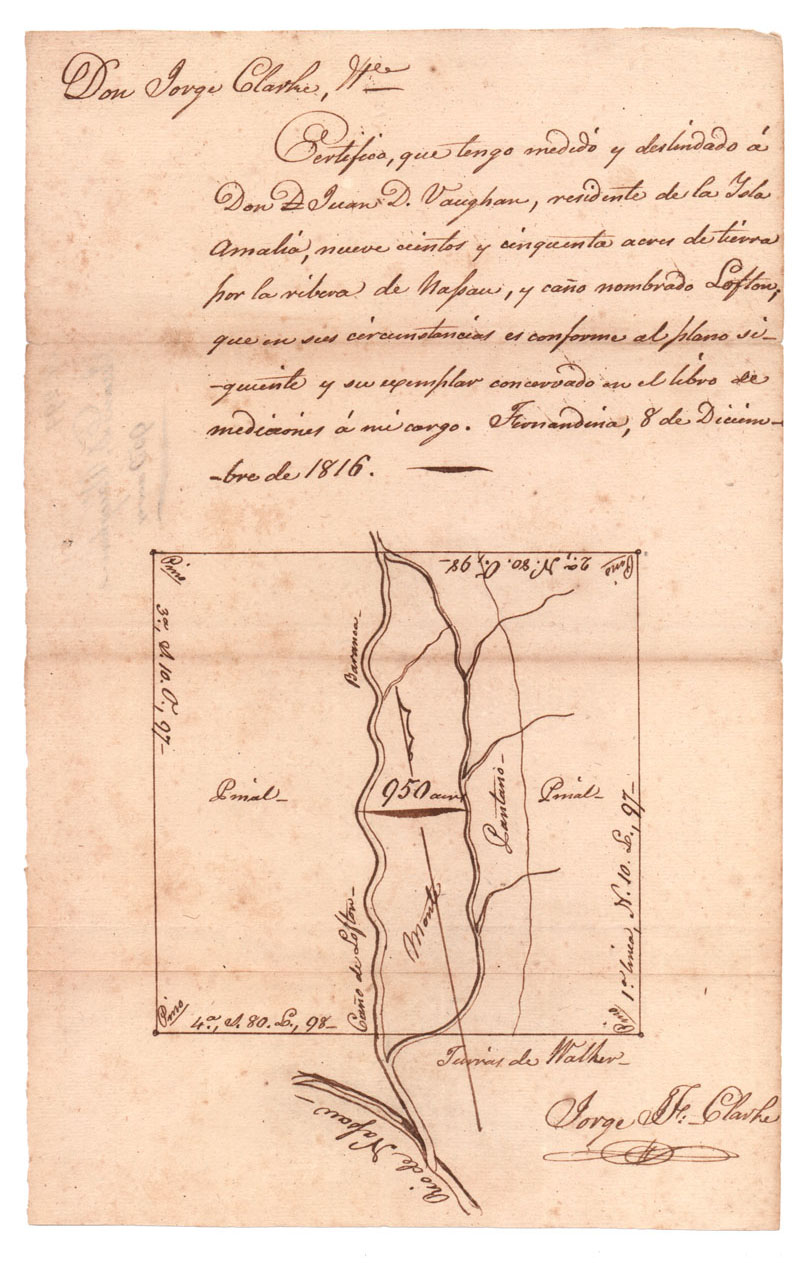 Don Jorge Clarke, &ce
Certifico, que tengo medidó y deslindado á
Don D Juan D. Vaughan, residente de la Isla
Amalia, nueve cientos y cinquenta acres de tierra
por la ribera de Nassau, y caño nombrado Lofton;
que en sus circunstancias es conforme al plano si-
-guiente y su exemplar concervado en el libro de
mediciones á mi cargo. Fernandina, 8 de Diciem-
-bre de 1816.
Pino
2a, N. 80. O., 98-
Pino
3a, S. 10. O., 97-
Baranca-
Pinal-
950 acres
Pantano-
Pinal-
1a linea, N. 10. E., 97-
Monte
Caño de Lofton-
Pino
4a, S. 80. E., 98-
Pino
Tierras de Walker-
Rio de Nassau-
Jorge J. F. Clarke